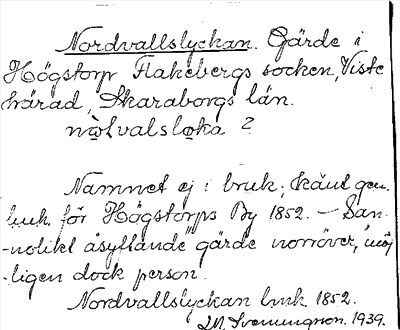 Nordvallslyckan. Gärde i
Högstorp Flakebergs socken, Viste
härad, Skaraborgs län.
?
Namnet ej i bruk; känt gen.
huk. för Högstorps By 1852. — San-
-nolikt åsyftande gärde norröver, "möj
-ligen dock person.
Nordvallslyckan huk. 1852.
Svenungson. 1939.